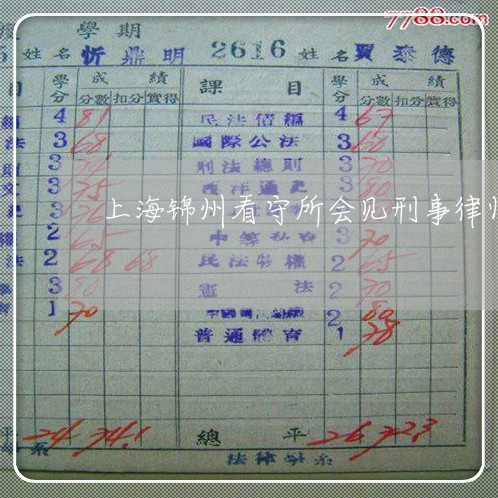 7788.com
學期
姓名 忻鼎明 2616 姓名 賈泰德
目 學分 成績 課目 學分 成績
分數 扣分 實得 分數 扣分 實得
4 81 民法債編 4 67
法 3 68 國際公法 3 60
3 刑法總則 3 70
文 3 75 西洋通史 3 80
上海锦州看守所会见刑事律师
2 65 3 70
法 2 68 68 民法物權 2 65
3 80 憲法 2 70
1 70 2 80
普通體育 1 78
平 24 74.1 總平 26 72.3
系 法律學系